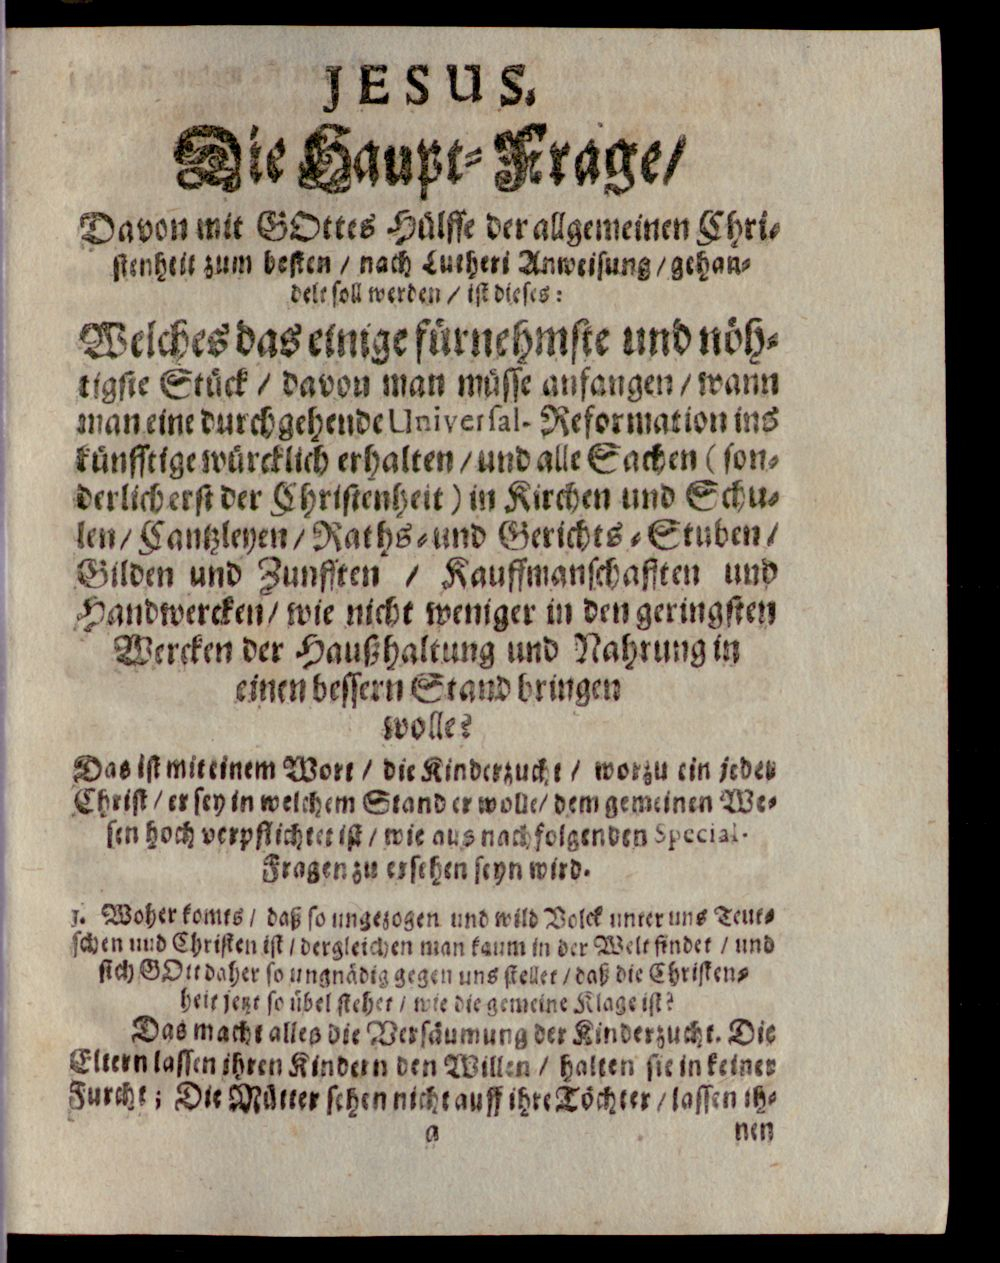 JESUS.
Die Haupt-Frage/
Davon mit GOttes Hülffe der allgemeinen Chri-
stenheit zum besten / nach Lutheri Anweisung / gehan-
delt soll werden / ist dieses:
Welches das einige fürnehmste und nöh-
tigste Stück / davon man müsse anfangen / wann
man eine durchgehende Universal- Reformation ins
künfftige würcklich erhalten / und alle Sachen ( son-
derlich erst der Christenheit ) in Kirchen und Schu-
len / Cantzleyen / Raths- und Gerichts - Stuben /
Gilden und Zunfften / Kauffmanschafften und
Handwercken / wie nicht weniger in den geringsten
Wercken der Haußhaltung und Nahrung in
einen bessern Stand bringen
wolle?
Das ist mit einem Wort / die Kinderzucht / worzu ein jeder
Christ / er sey in welchem Stand er wolle / dem gemeinen We-
sen hoch verpflichtet ist / wie aus nachfolgenden Special-
Fragen zu ersehen seyn wird.
1. Woher komts / daß so ungezogen und wild Volck unter uns Teut-
schen und Christen ist / dergleichen man kaum in der Welt findet / und
sich GOtt daher so ungnädig gegen uns stellet / daß die Christen-
heit jetzt so übel stehet / wie die gemeine Klage ist?
Das macht alles die Versäumung der Kinderzucht. Die
Eltern lassen ihren Kindern den Willen / halten sie in keiner
Furcht ; Die Mütter sehen nicht auff ihre Töchter / lassen ih-
a nen